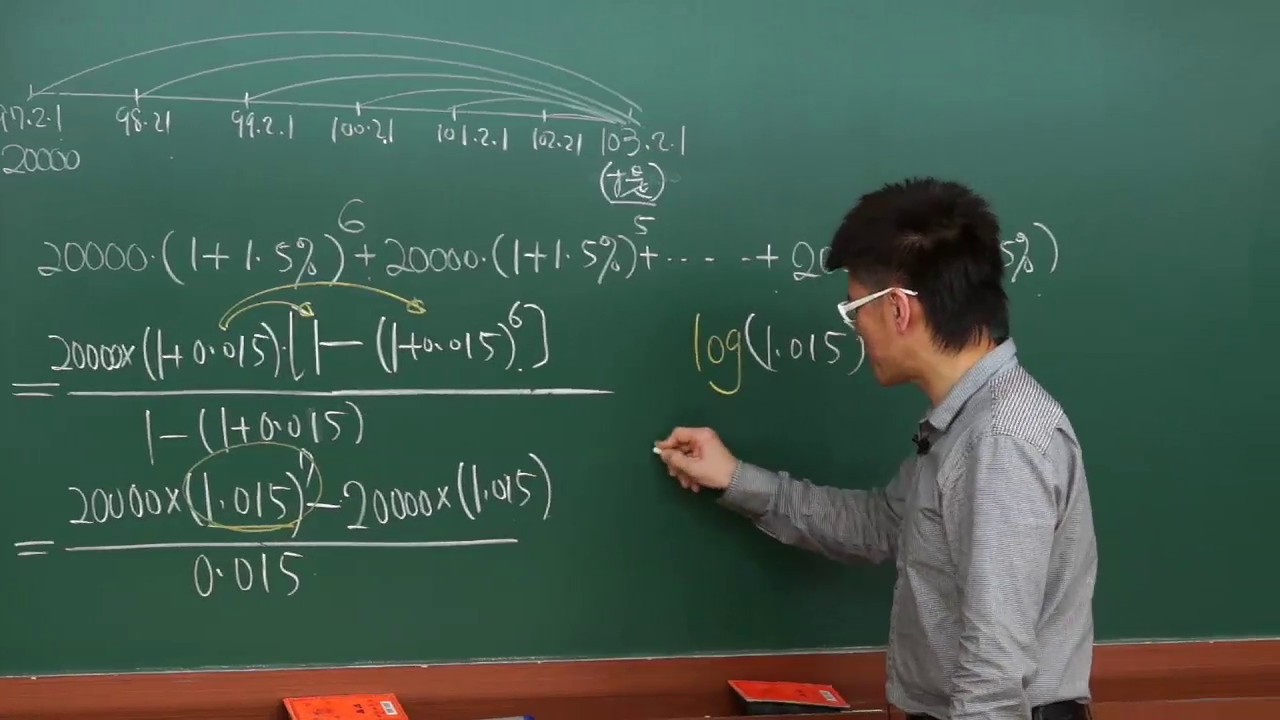 97.2.1 98.2.1 99.2.1 100.2.1 101.2.1 102.2.1 103.2.1
20000
20000·(1+1.5%)⁶+20000·(1+1.5%)⁵+·····+20 5%)
20000×(1+0.015)·[1-(1+0.015)⁶]
=
1-(1+0.015)
log(1.015)
20000×(1.015)⁷-20000×(1.015)
=
0.015